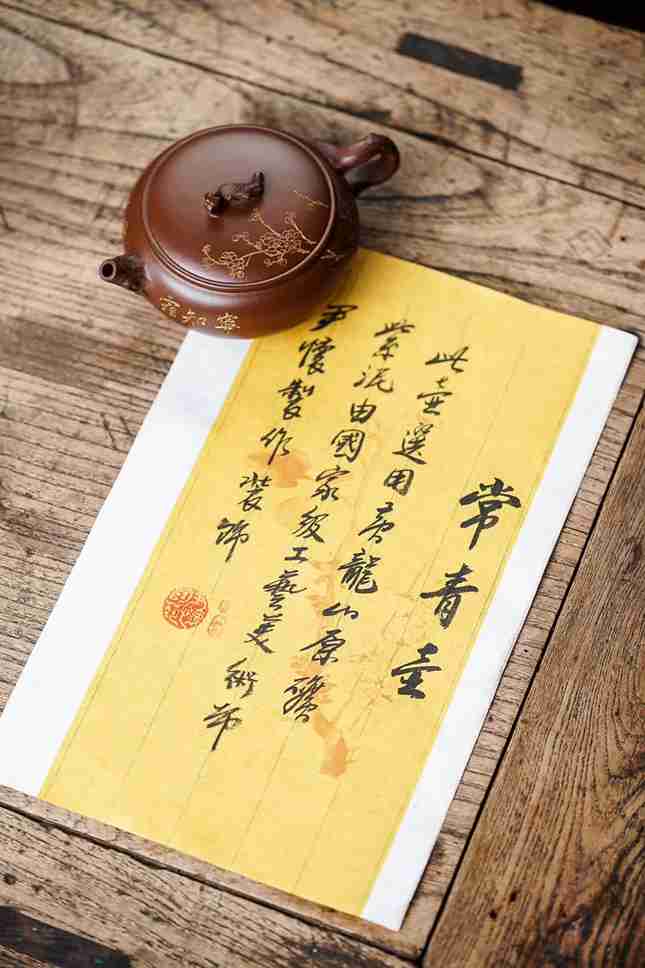 常青壶
此壶選用黄龍山原礦
紫泥由國家級工藝美術師
懷製作裝飾
知